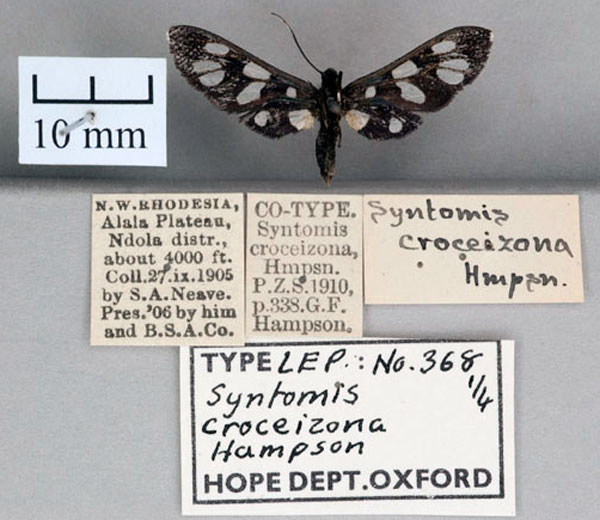 10 mm
N.W.RHODESIA,
Alala Plateau,
Ndola distr.,
about 4000 ft.
Coll.27.ix.1905
by S.A. Neave.
Pres.'06 by him
and B.S.A.Co.
CO-TYPE.
Syntomis
croceizona,
Hmpsn.
P.Z.S.1910,
p.338.G.F.
Hampson.
Syntomis
croceizona
Hmpsn.
TYPE LEP.: No. 368
1/4
Syntomis
croceizona
Hampson
HOPE DEPT.OXFORD